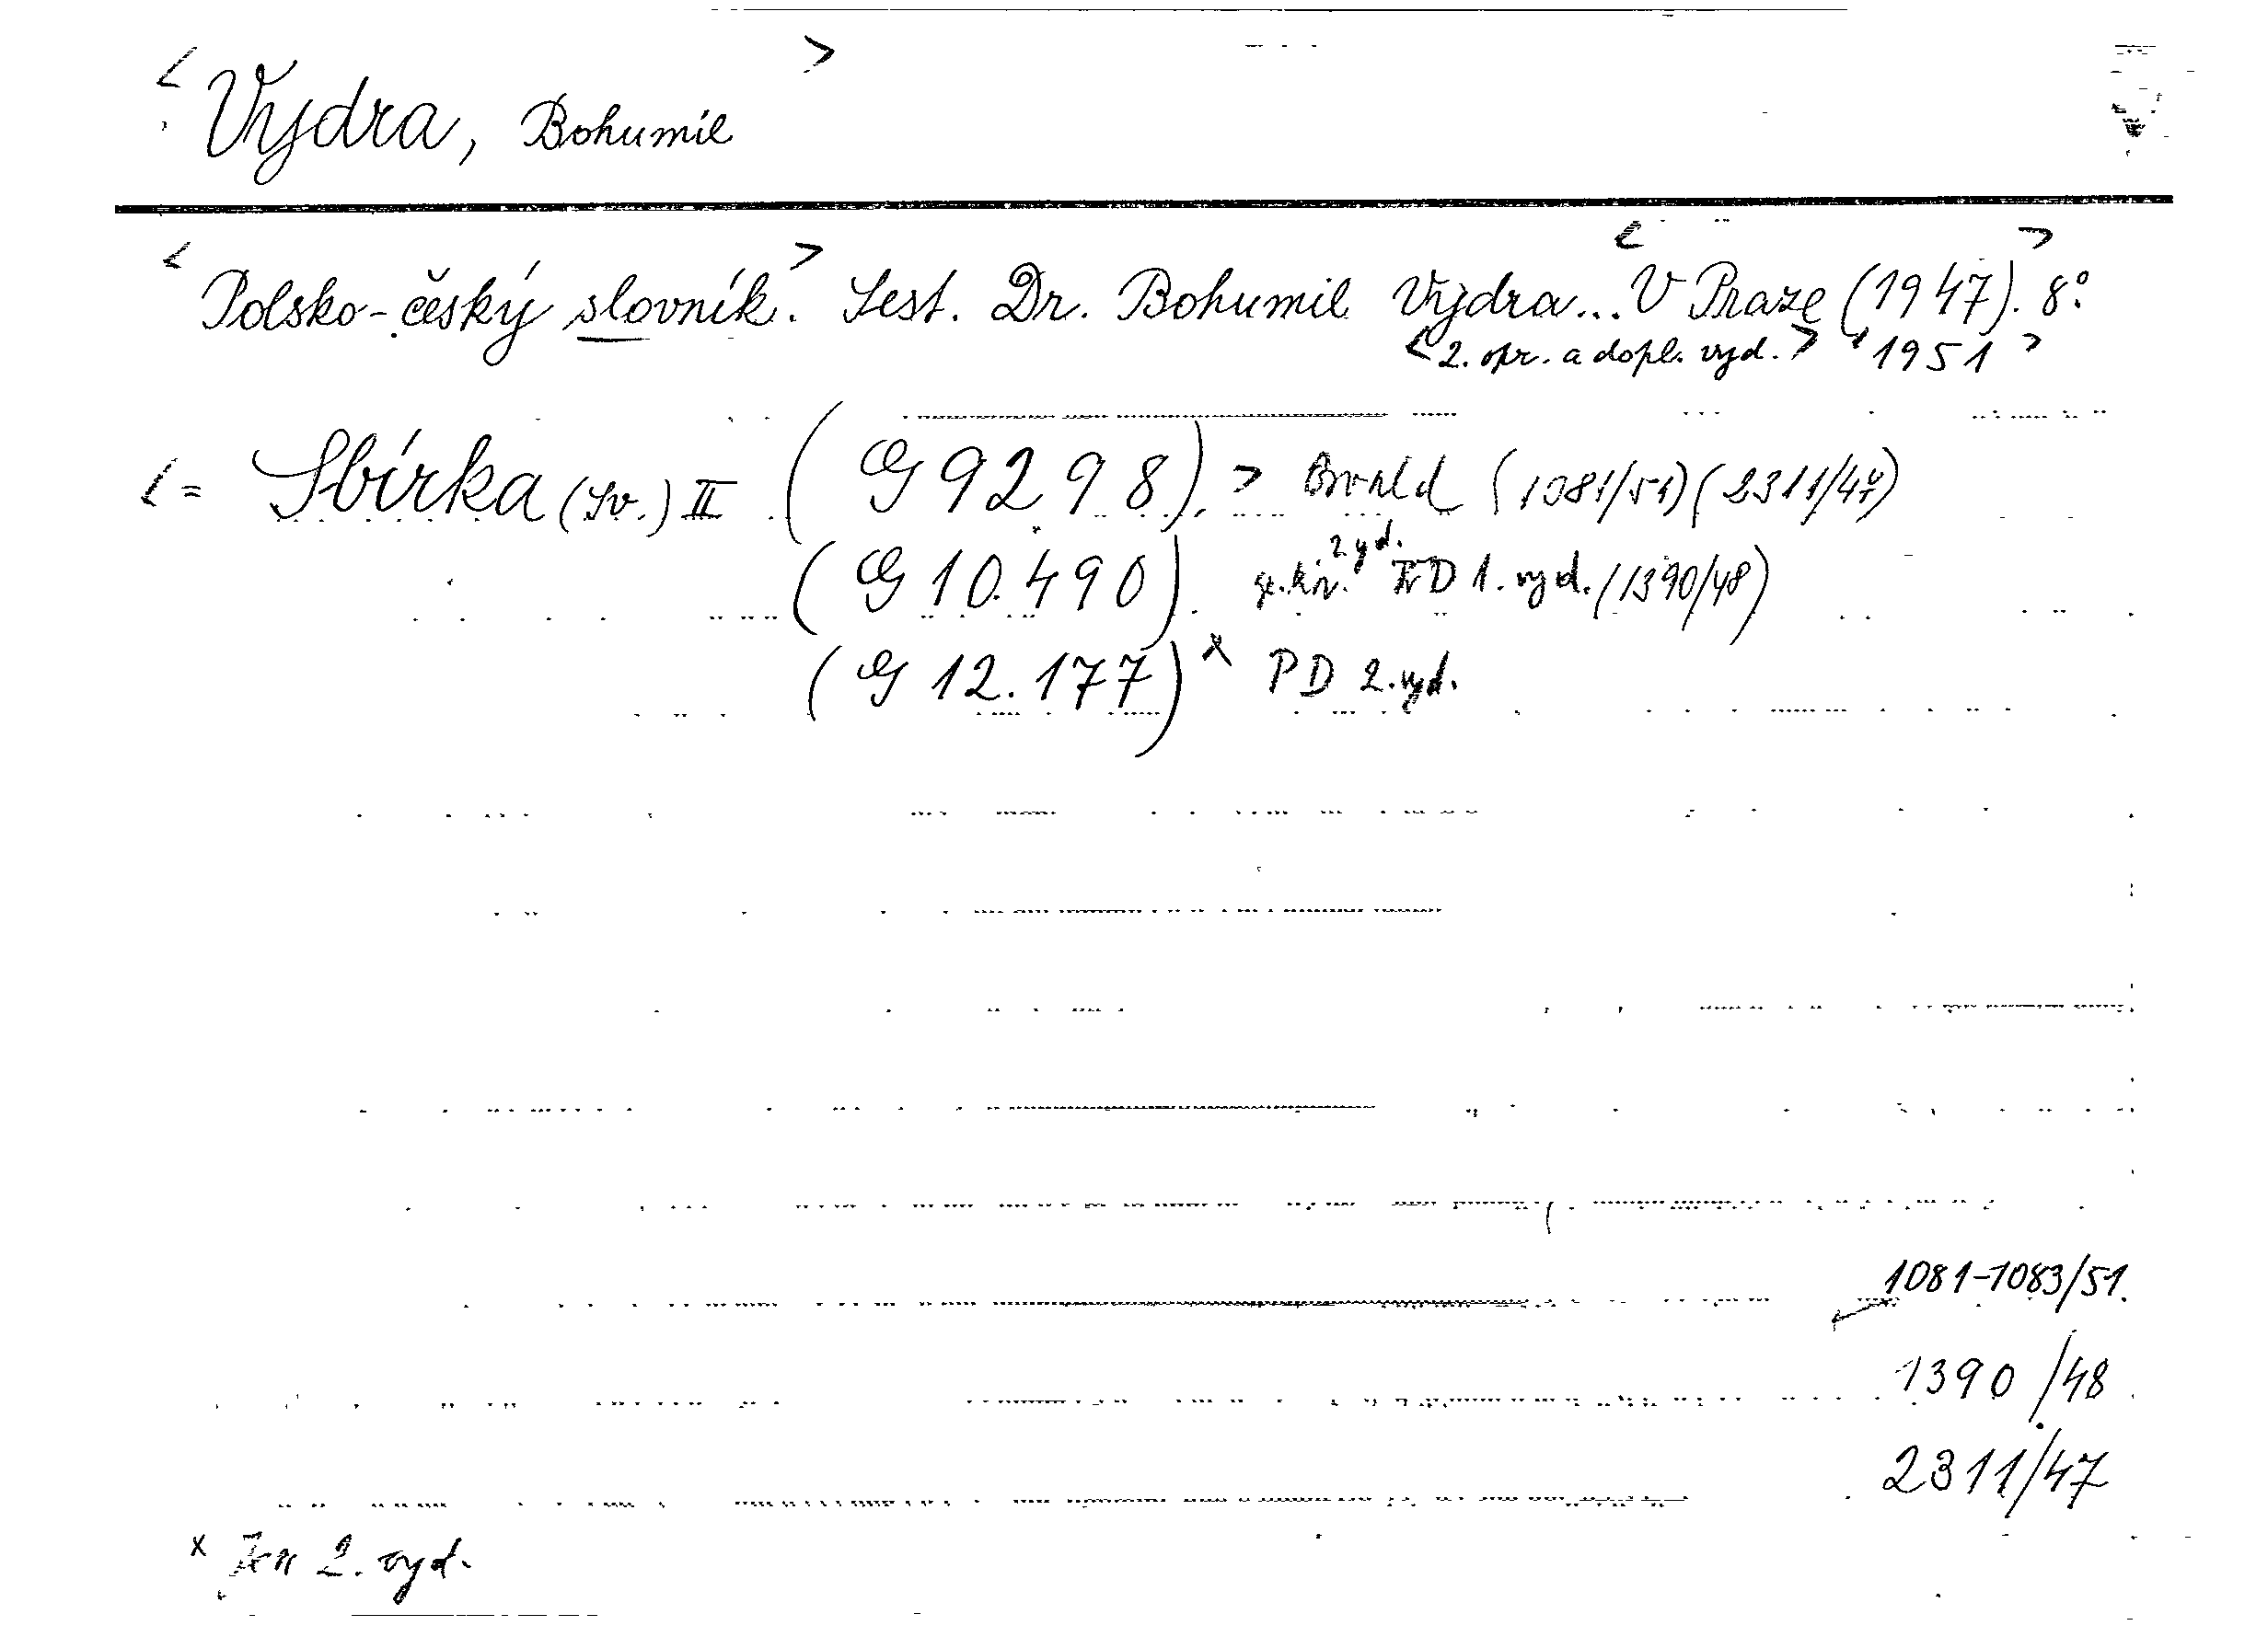 < Vydra, Bohumil >
< Polsko-český slovník. > Sest. Dr. Bohumil Vydra... < V Praze (1947). > 8°.
< 2. opr. a dopl. vyd. > < 1951 >
< = Sbírka (Sv.) II (G 9298). > (1081/51) (2311/47)
2 yd.
(G 10.490). 1. vyd. (1390/48)
(G 12.177) x PD 2. vyd.
1081-1083/51.
1390/48
2311/47
x Jen 2. vyd.